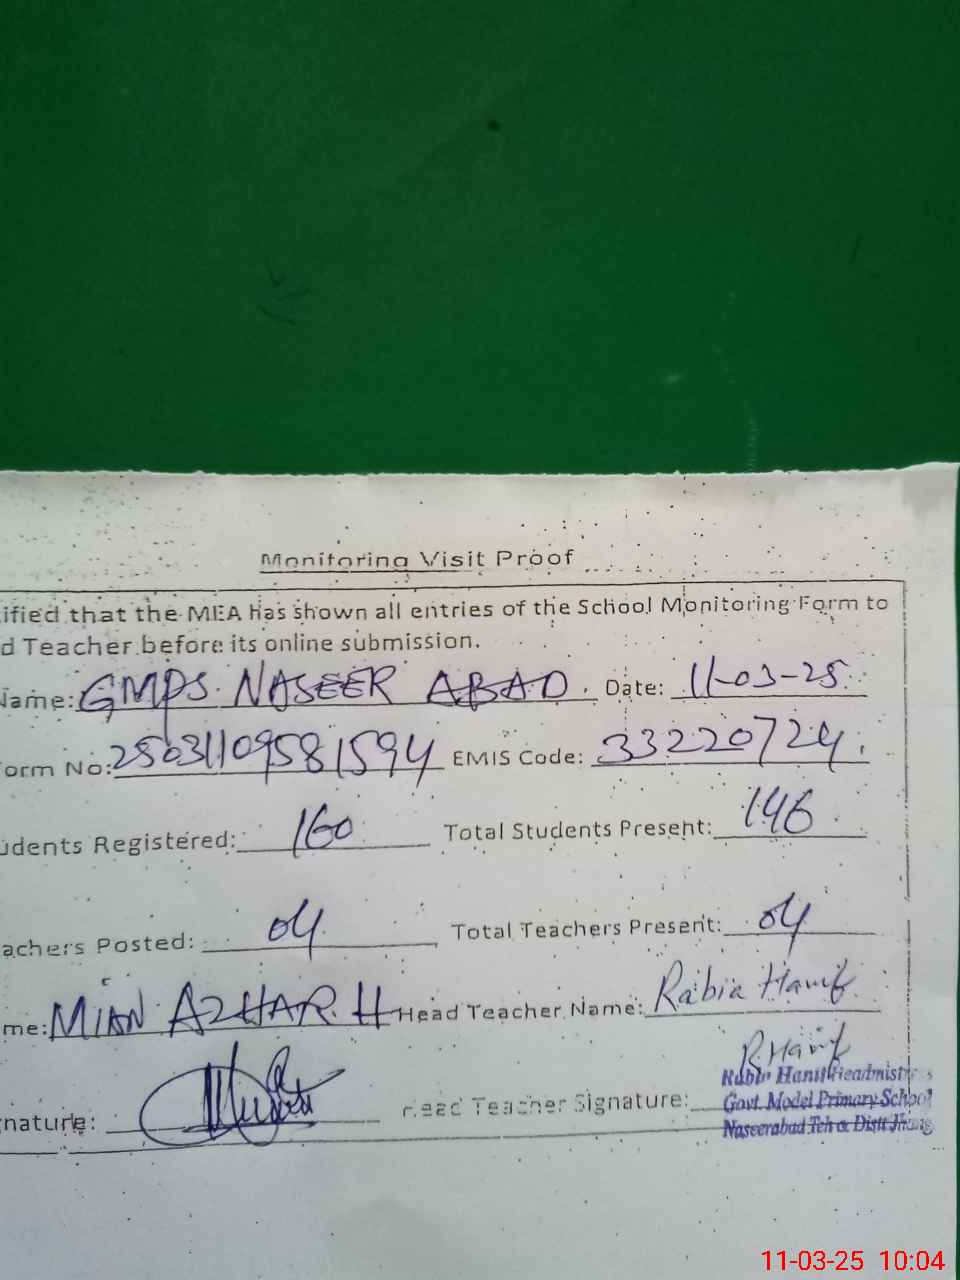 Monitoring Visit Proof
ified that the MEA has shown all entries of the School Monitoring Form to
d Teacher before its online submission.
Name: GMPS. NASEER ABAD. Date: 11-03-25
orm No: 25031109581594 EMIS Code: 33220724.
udents Registered: 160 Total Students Present: 146
achers Posted: 04 Total Teachers Present: 04
me: MIAN AZHAR. H Head Teacher Name: Rabia Hanif
R.Hanif
nature: Head Teacher Signature:
Rabia Hanif Headmistress
Govt. Model Primary School
Naseerabad Teh & Distt Jhang
11-03-25 10:04